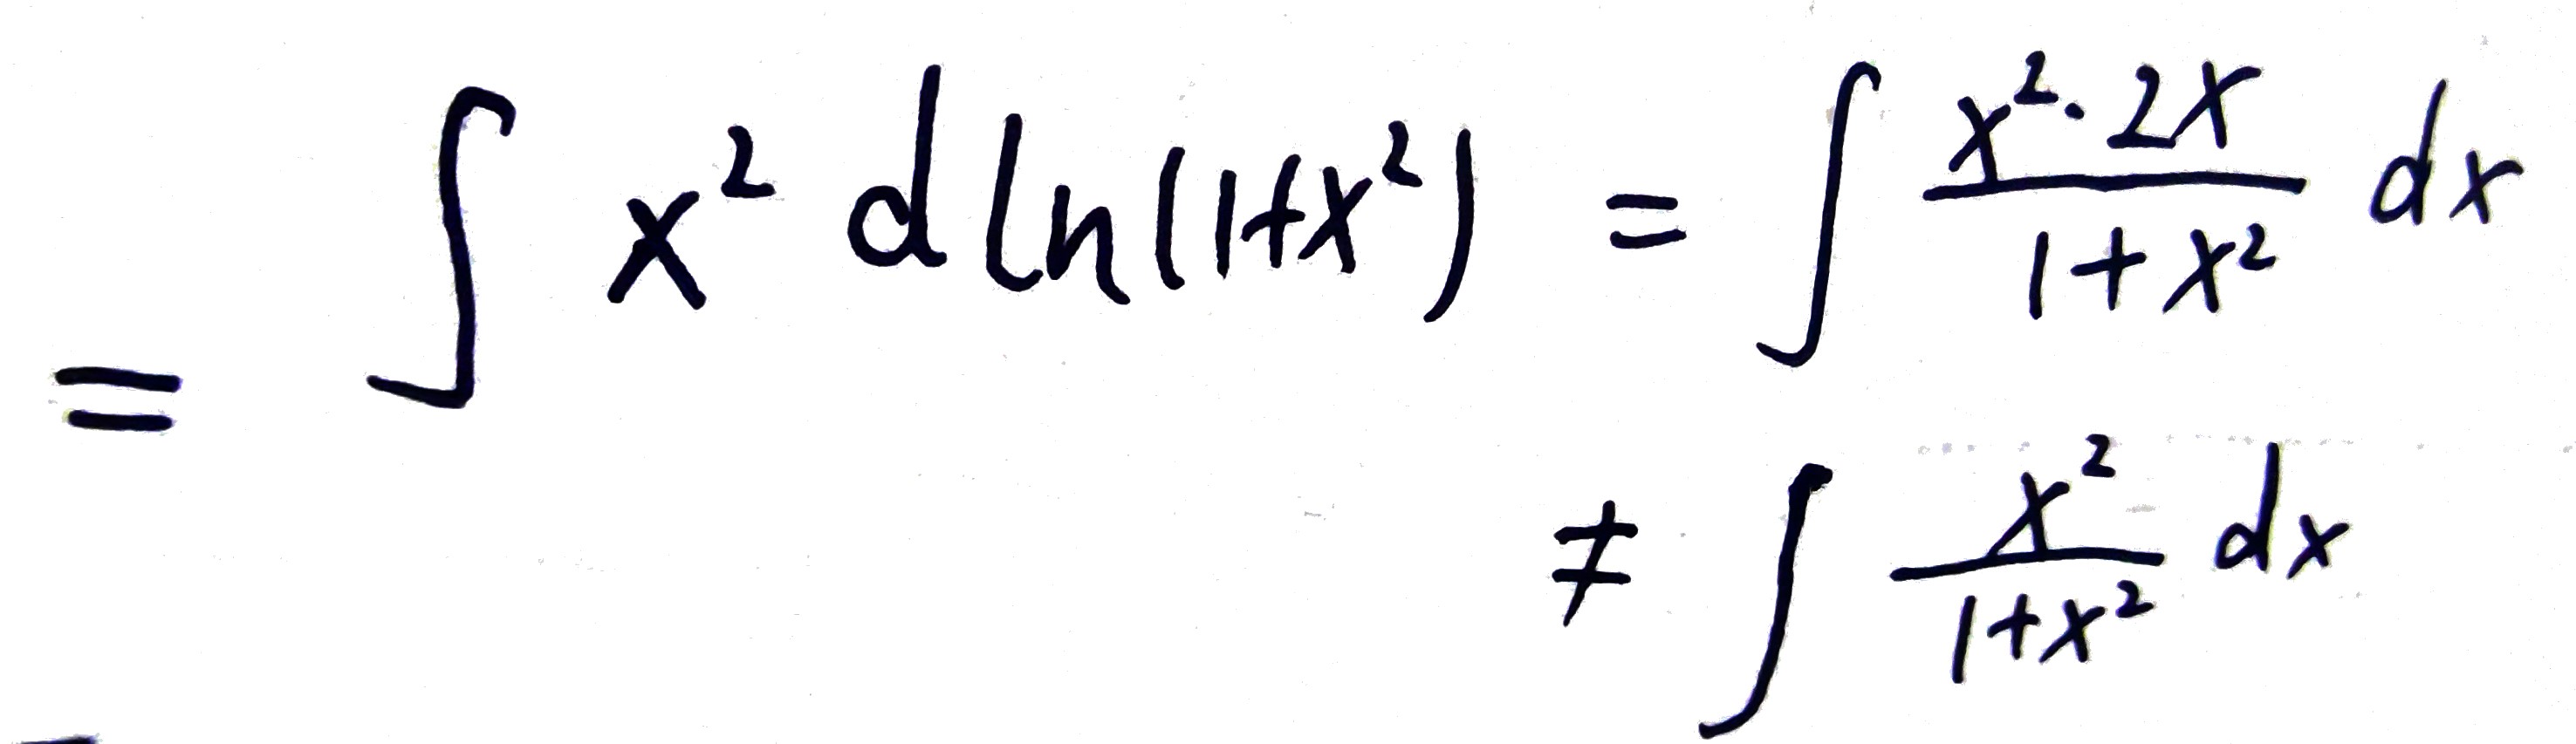 = ∫ x² d ln(1+x²) = ∫ \frac{x²·2x}{1+x²} dx
≠ ∫ \frac{x²}{1+x²} dx